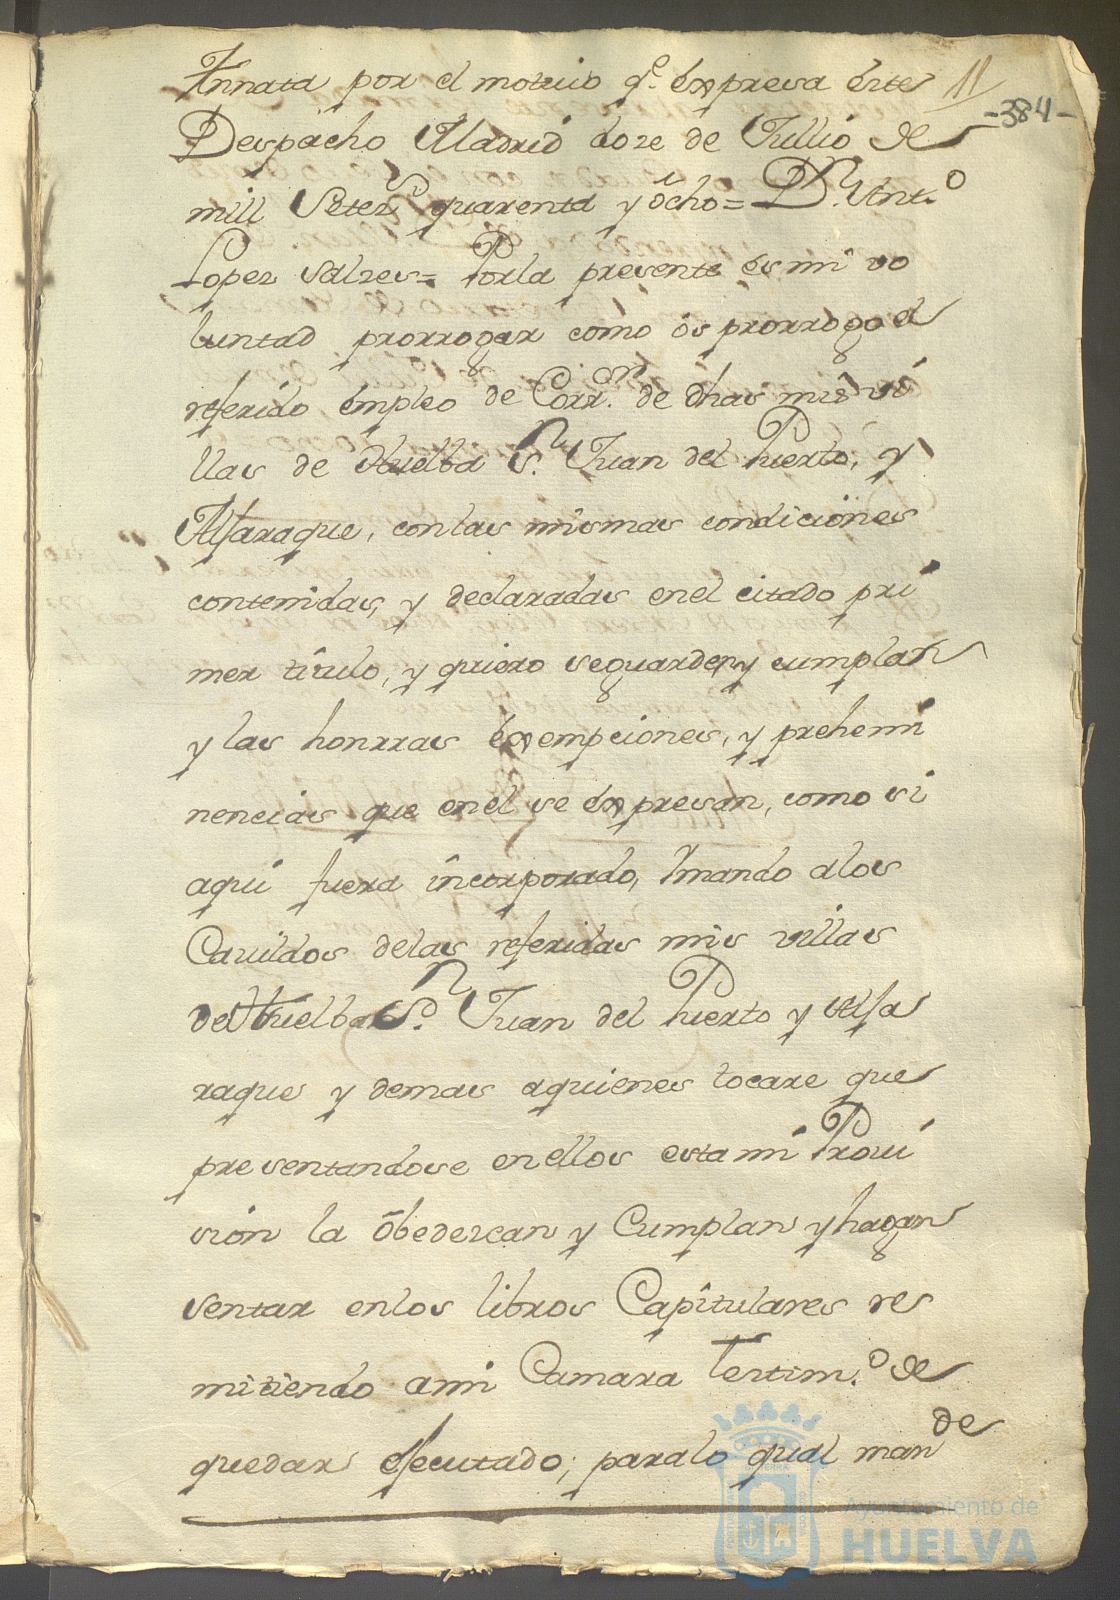 Annata por el motiuo q.e expresa este
11
-384-
Despacho Madrid doze de Jullio de
mill Setez.s quarenta y ôcho = D.n Ant.o
Lopez Salzes = Porla presente es mi vo
luntad prorrogar como ôs prorrogo el
referido êmpleo de Corr.or de dhas mis vi
llas de Huelba S.n Juan del Puerto, y
Aljaraque, conlas mismas condiciônes
contenidas, y declaradas enel citado pri
mer titulo, y quiero seguarden y cumplan
y las honrras êxempciones, y prehemi
nencias que enel se êxpresan, como si
aqui fuera incorporado, Ymando alos
Cauildos delas referidas mis villas
de Huelba S.n Juan del Puerto y Alja
raque y demas aquienes tocare que
presentandose enellos esta mi Proui
sion la ôbedezcan y Cumplan y hagan
sentar enlos libros Capitulares re
mitiendo ami Camara Testim.o de
quedar efecutado; paralo qual man
de
Ayuntamiento de
HUELVA